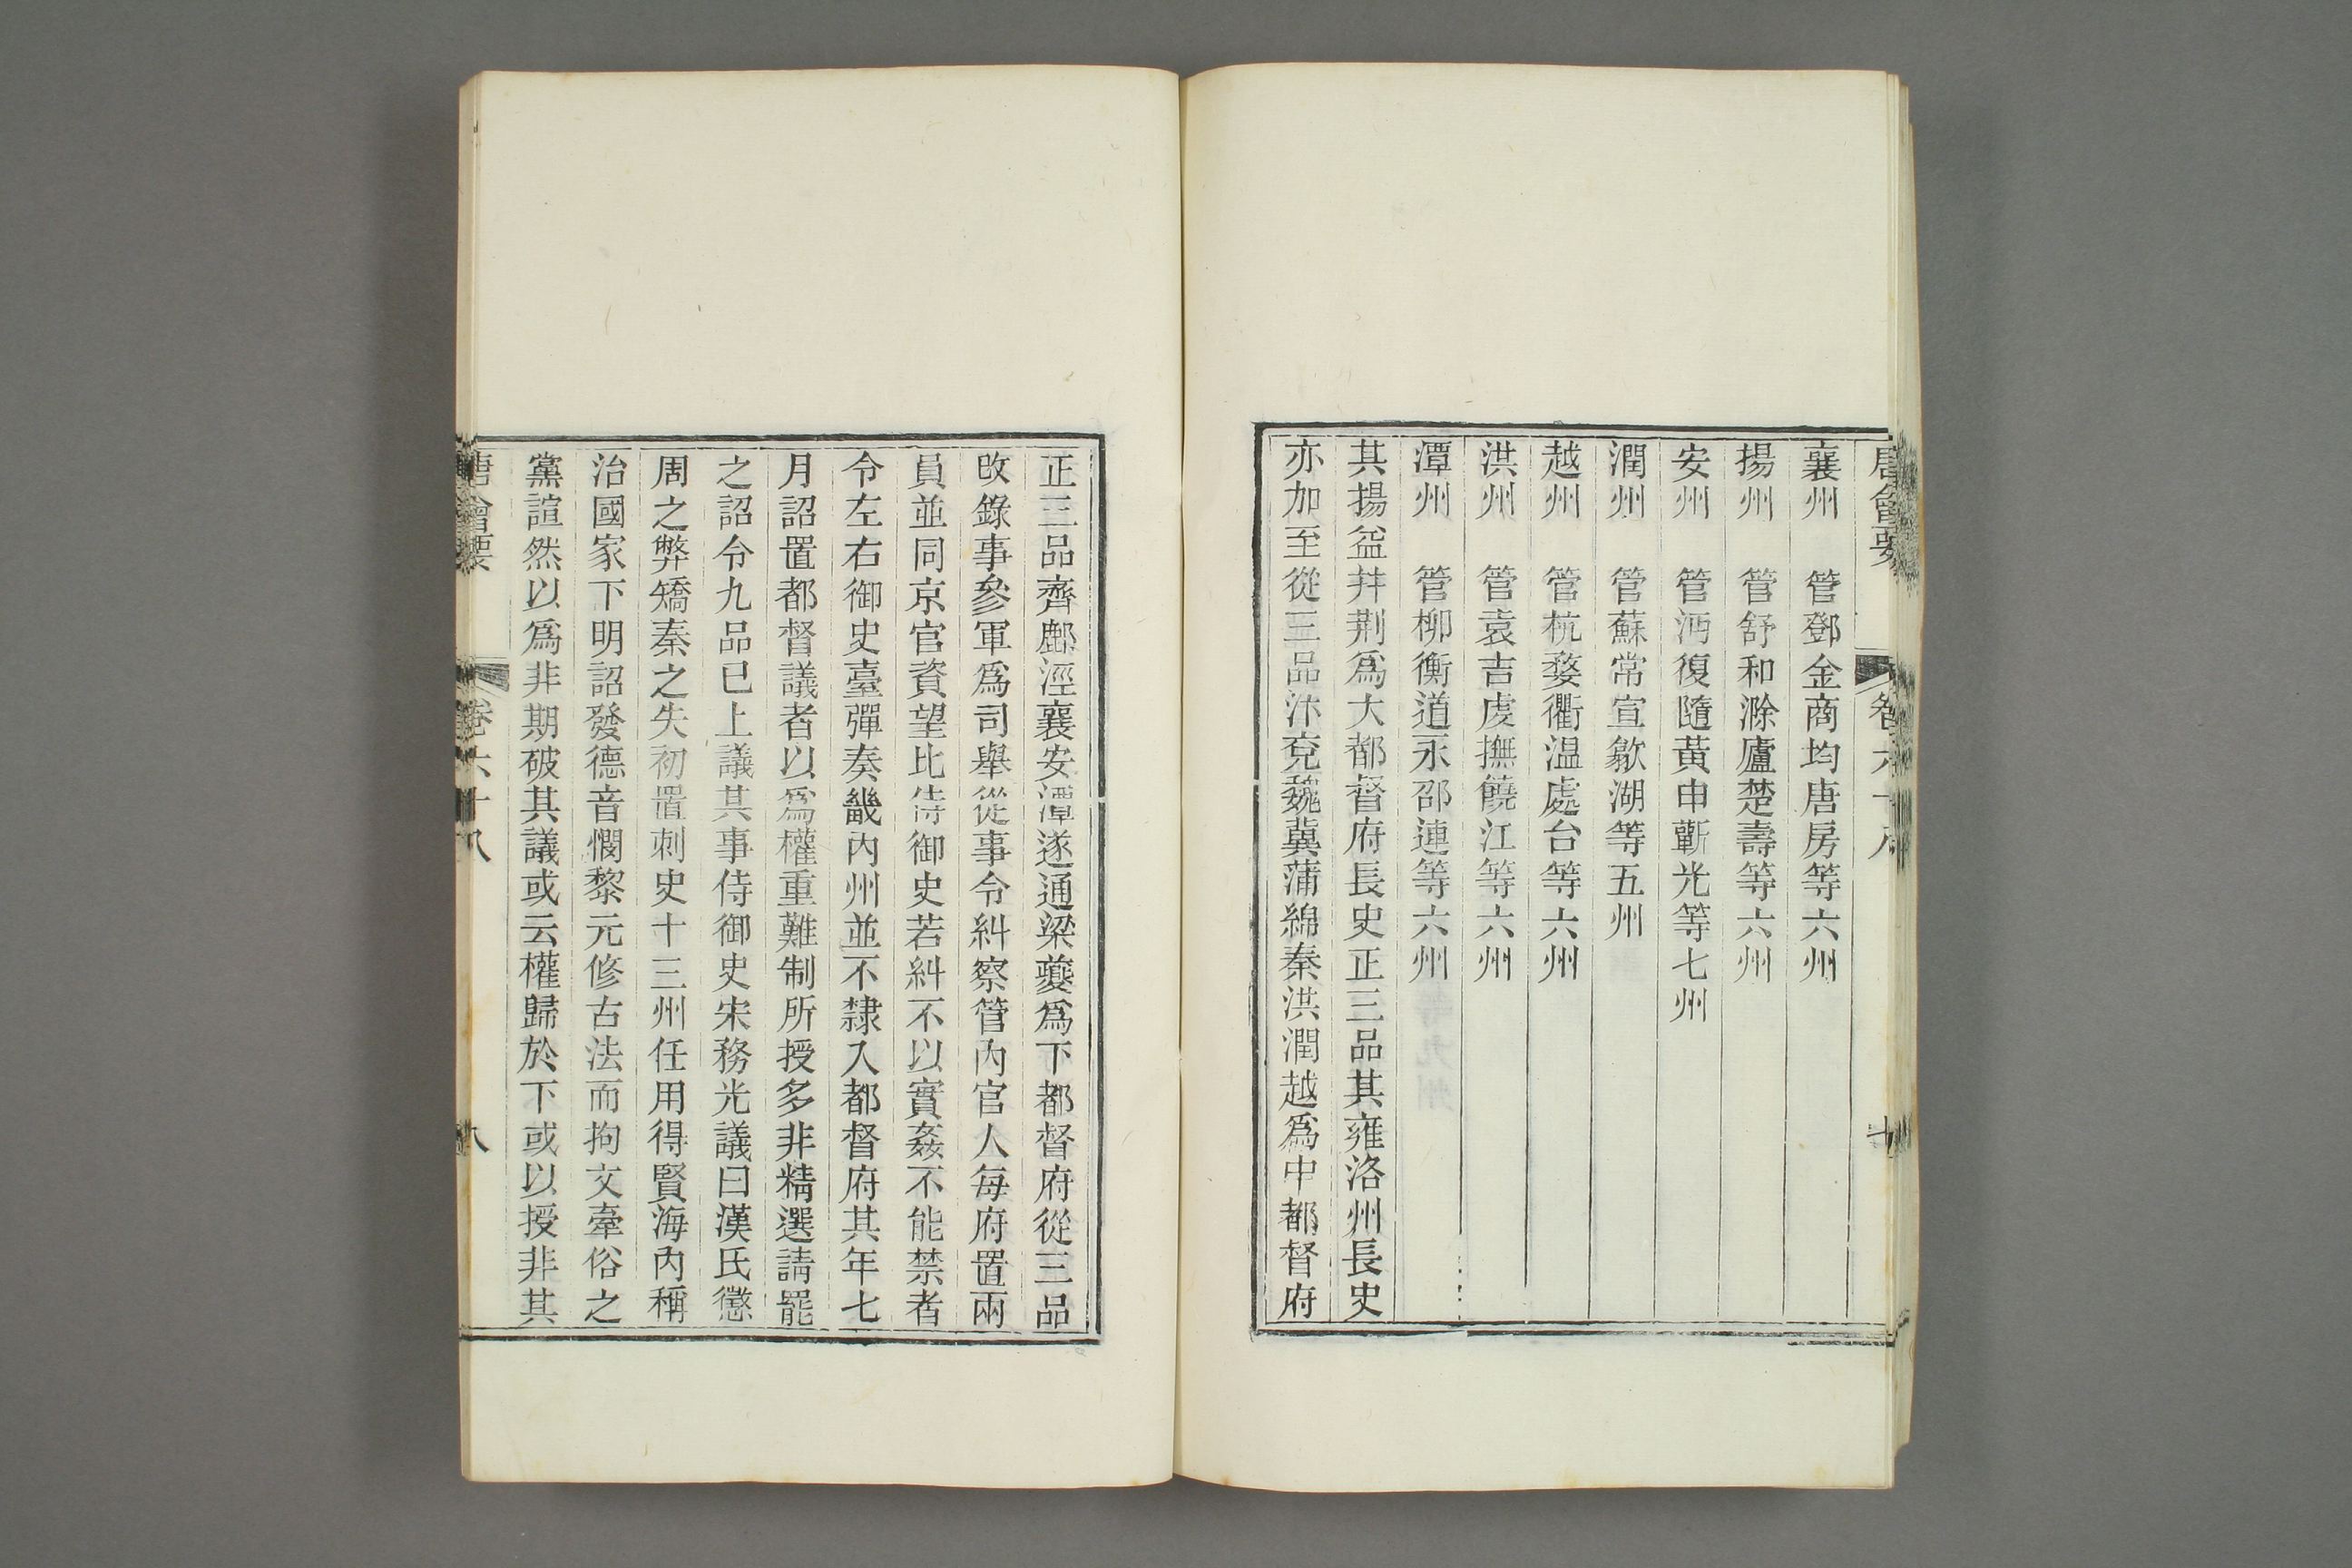 唐會要 卷六十八 七
襄州 管鄧金商均唐房等六州
揚州 管舒和滁廬楚壽等六州
安州 管沔復隨黃申蘄光等七州
潤州 管蘇常宣歙湖等五州
越州 管杭婺衢温處台等六州
洪州 管袁吉虔撫饒江等六州
潭州 管柳衡道永邵連等六州
其揚益幷荆爲大都督府長史正三品其雍洛州長史
亦加至從三品汴兗魏冀蒲綿秦洪潤越爲中都督府
正三品齊鄜涇襄安潭遂通梁夔爲下都督府從三品
改錄事參軍爲司舉從事令糾察管內官人每府置兩
員並同京官資望比侍御史若糾不以實姦不能禁者
令左右御史臺彈奏畿內州並不隸入都督府其年七
月詔置都督議者以爲權重難制所授多非精選請罷
之詔令九品已上議其事侍御史宋務光議曰漢氏懲
周之弊矯秦之失初置刺史十三州任用得賢海內稱
治國家下明詔發德音憫黎元修古法而拘文牽俗之
黨諠然以爲非期破其議或云權歸於下或以授非其
唐會要 卷六十八 八